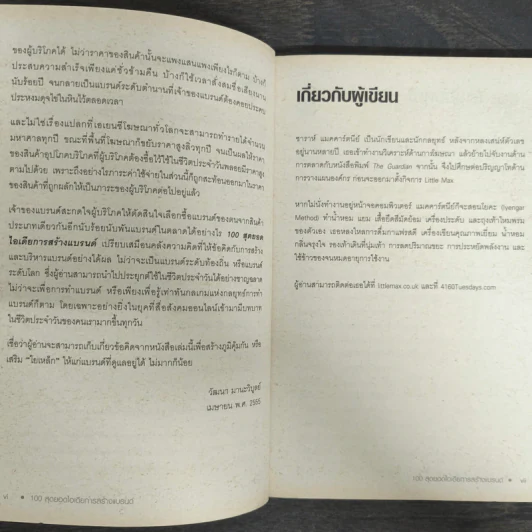 ของผู้บริโภคได้ ไม่ว่าราคาของสินค้านั้นจะแพงแสนแพงเพียงไรก็ตาม บ้างก็
ประสบความสำเร็จเพียงแค่ชั่วข้ามคืน บ้างก็ใช้เวลาสั่งสมชื่อเสียงนาน
นับร้อยปี จนกลายเป็นแบรนด์ระดับตำนานที่เจ้าของแบรนด์ต้องคอยประคบ
ประหงมดุจไข่ในหินไว้ตลอดเวลา
และไม่ใช่เรื่องแปลกที่เอเยนซีโฆษณาทั่วโลกจะสามารถทำรายได้จำนวน
มหาศาลทุกปี ขณะที่พื้นที่โฆษณาก็ขยับราคาสูงลิ่วทุกปี จนเป็นผลให้ราคา
ของสินค้าอุปโภคบริโภคที่ผู้บริโภคต้องซื้อไว้ใช้ในชีวิตประจำวันพลอยมีราคาสูง
ตามไปด้วย เพราะถึงอย่างไรภาระค่าใช้จ่ายในส่วนนี้ก็ถูกสะท้อนออกมาในราคา
ของสินค้าที่ถูกผลักให้เป็นภาระของผู้บริโภคต่อไปอยู่แล้ว
เจ้าของแบรนด์สะกดใจผู้บริโภคให้ตัดสินใจเลือกซื้อแบรนด์ของตนจากสินค้า
ประเภทเดียวกันอีกนับร้อยนับพันแบรนด์ในตลาดได้อย่างไร 100 สุดยอด
ไอเดียการสร้างแบรนด์ เปรียบเสมือนคลังความคิดที่ให้ข้อคิดกับการสร้าง
และบริหารแบรนด์อย่างได้ผล ไม่ว่าจะเป็นแบรนด์ระดับท้องถิ่น หรือแบรนด์
ระดับโลก ซึ่งผู้อ่านสามารถนำไปประยุกต์ใช้ในชีวิตประจำวันได้อย่างชาญฉลาด
ไม่ว่าจะเพื่อการทำแบรนด์ หรือเพียงเพื่อรู้เท่าทันกลเกมแห่งกลยุทธ์การทำ
แบรนด์ก็ตาม โดยเฉพาะอย่างยิ่งในยุคที่สื่อสังคมออนไลน์เข้ามามีบทบาท
ในชีวิตประจำวันของคนเรามากขึ้นทุกวัน
เชื่อว่าผู้อ่านจะสามารถเก็บเกี่ยวข้อคิดจากหนังสือเล่มนี้เพื่อสร้างภูมิคุ้มกัน หรือ
เสริม "ใยเหล็ก" ให้แก่แบรนด์ที่ดูแลอยู่ได้ ไม่มากก็น้อย
วัฒนา มานะวิบูลย์
เมษายน พ.ศ. 2555
100 สุดยอดไอเดียการสร้างแบรนด์
เกี่ยวกับผู้เขียน
ซาราห์ แมคคาร์ตนีย์ เป็นนักเขียนและนักกลยุทธ์ หลังจากหลงเสน่ห์ตัวเลข
อยู่นานหลายปี เธอเข้าทำงานวิเคราะห์ด้านการโฆษณา แล้วย้ายไปจับงานด้าน
การตลาดกับหนังสือพิมพ์ The Guardian จากนั้น จึงไปศึกษาต่อปริญญาโทด้าน
การวางแผนองค์กร ก่อนจะออกมาตั้งกิจการ Little Max
หากไม่นั่งทำงานอยู่หน้าจอคอมพิวเตอร์ แมคคาร์ตนีย์ก็จะสอนโยคะ (Iyengar
Method) ทำน้ำหอม แถม เสื้อยืดสีมัดย้อม เครื่องประดับ และถุงเท้าไหมพรม
ของตัวเอง เธอหลงใหลการดื่มกาแฟรสดี เครื่องเขียนคุณภาพเยี่ยม น้ำหอม
กลิ่นจรุงใจ รองเท้าเดินที่นุ่มเท้า การลดปริมาณขยะ การประหยัดพลังงาน และ
ใช้ข้าวของจนหมดอายุการใช้งาน
ผู้อ่านสามารถติดต่อเธอได้ที่ littlemax.co.uk และที่ 4160Tuesdays.com
100 สุดยอดไอเดียการสร้างแบรนด์